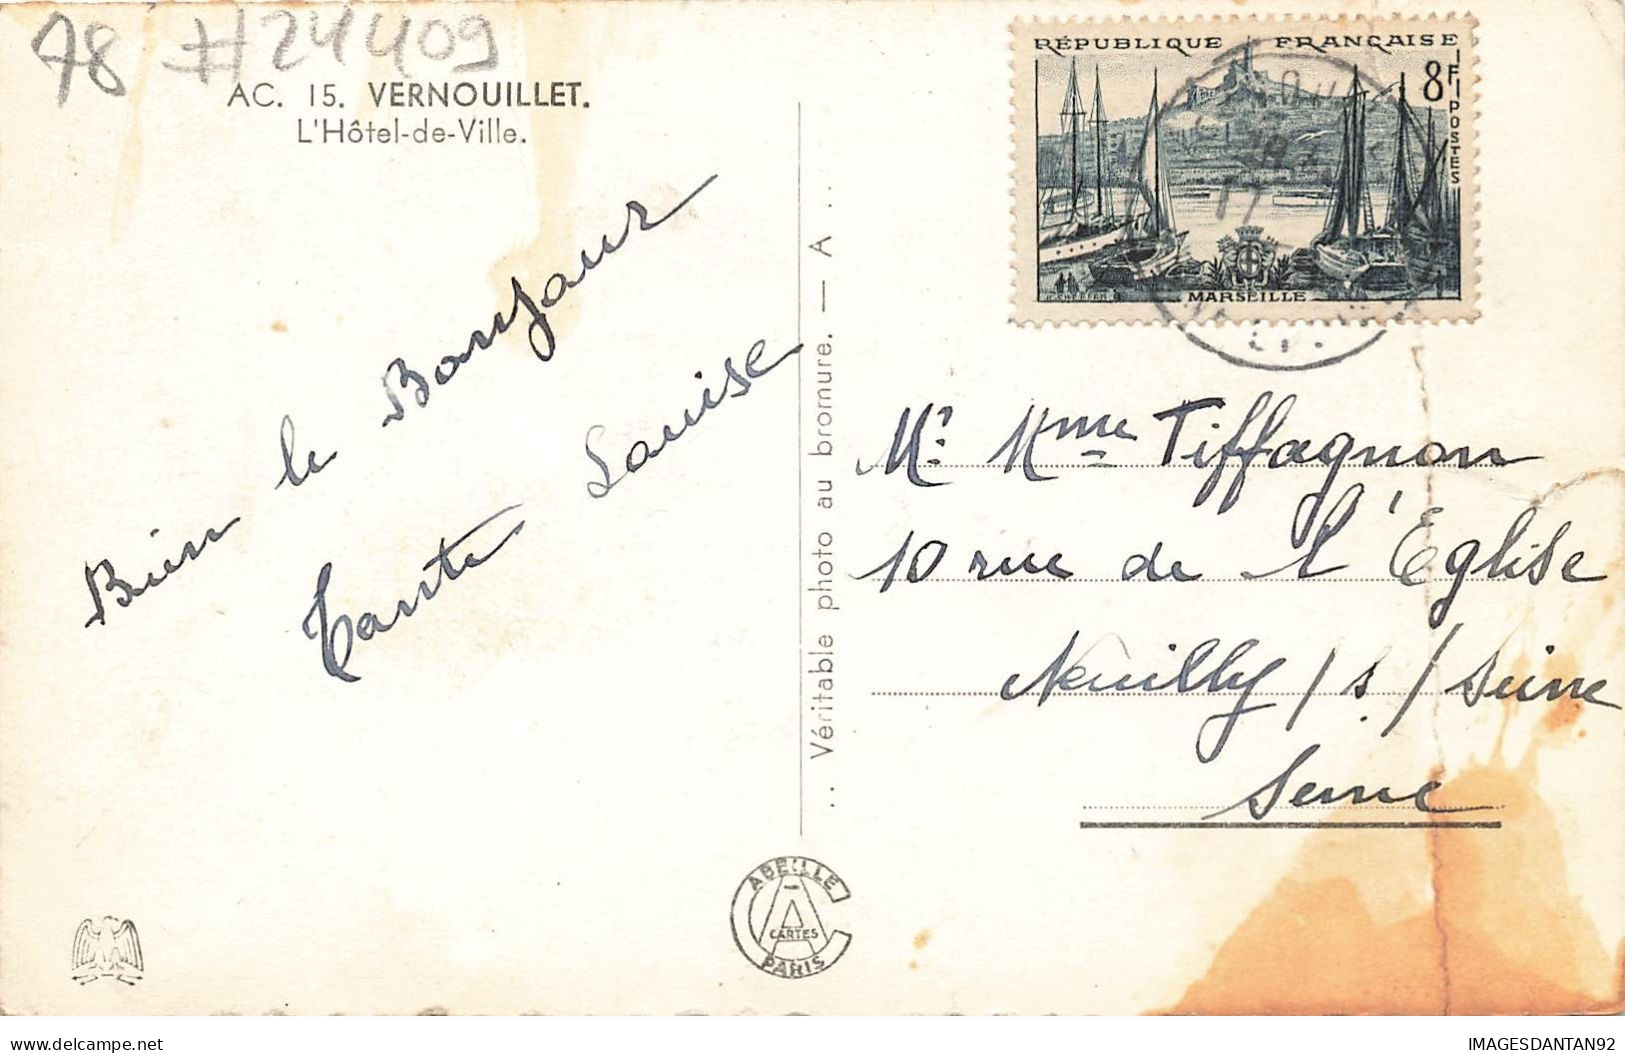 78 #24409
AC. 15. VERNOUILLET.
L'Hôtel-de-Ville.
Bien le Bonjour
Tante Louise
Véritable photo au bromure. — A
ABEILLE
CARTES
PARIS
RÉPUBLIQUE FRANÇAISE
8F
POSTES
MARSEILLE
Mr. Mme Tiffagnon
10 rue de l'Eglise
Neuilly /s/ Seine
Seine
IMAGESDANTAN92